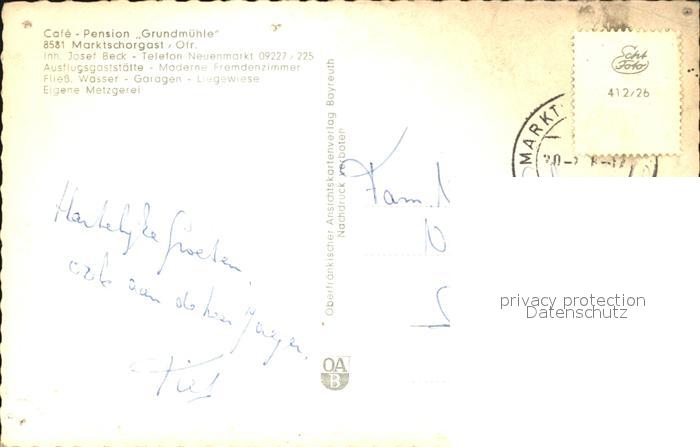 Café - Pension „Grundmühle"
8581 Marktschorgast / Ofr.
Inh. Josef Beck - Telefon Neuenmarkt 09227 / 225
Ausflugsgaststätte - Moderne Fremdenzimmer
Fließ. Wasser - Garagen - Liegewiese
Eigene Metzgerei
Hartelijke Groeten,
ook aan de heer
Oberfränkischer Ansichtskartenverlag Bayreuth
Nachdruck verboten
OA
B
Fam.
Foto
412/26
MARKT
privacy protection
Datenschutz